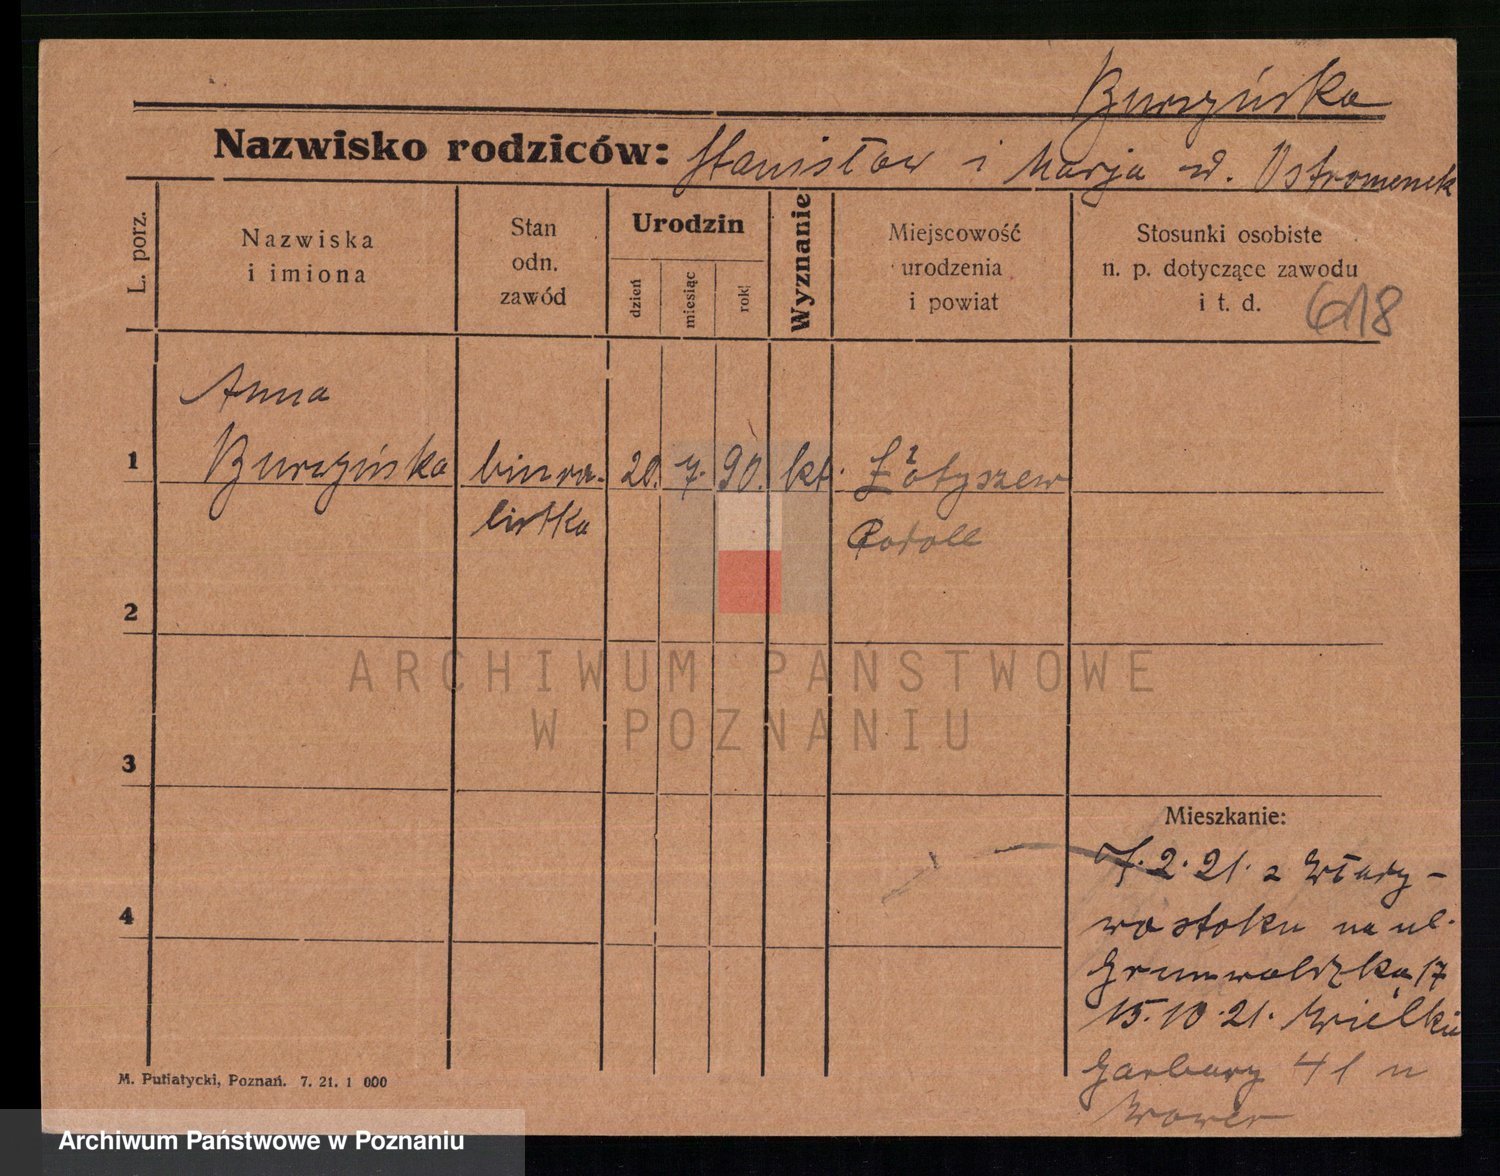 Burzyńska
Nazwisko rodziców: Stanisław i Marja z d. Ostromenek
L. porz.
Nazwiska
i imiona
Stan
odn.
zawód
Urodzin
dzień
miesiąc
rok
Wyznanie
Miejscowość
urodzenia
i powiat
Stosunki osobiste
n. p. dotyczące zawodu
i t. d.
618
Anna
1 Burzyńska biura- 20. 7. 90. kt.
listka
2
ARCHIWUM PAŃSTWOWE
W POZNANIU
3
Mieszkanie:
2. 21. z Włady-
wostoku na ul.
4
Grunwaldzką 17
15. 10. 21. Wielkie
Garbary 41 u
M. Putiatycki, Poznań. 7. 21. 1 000
Archiwum Państwowe w Poznaniu